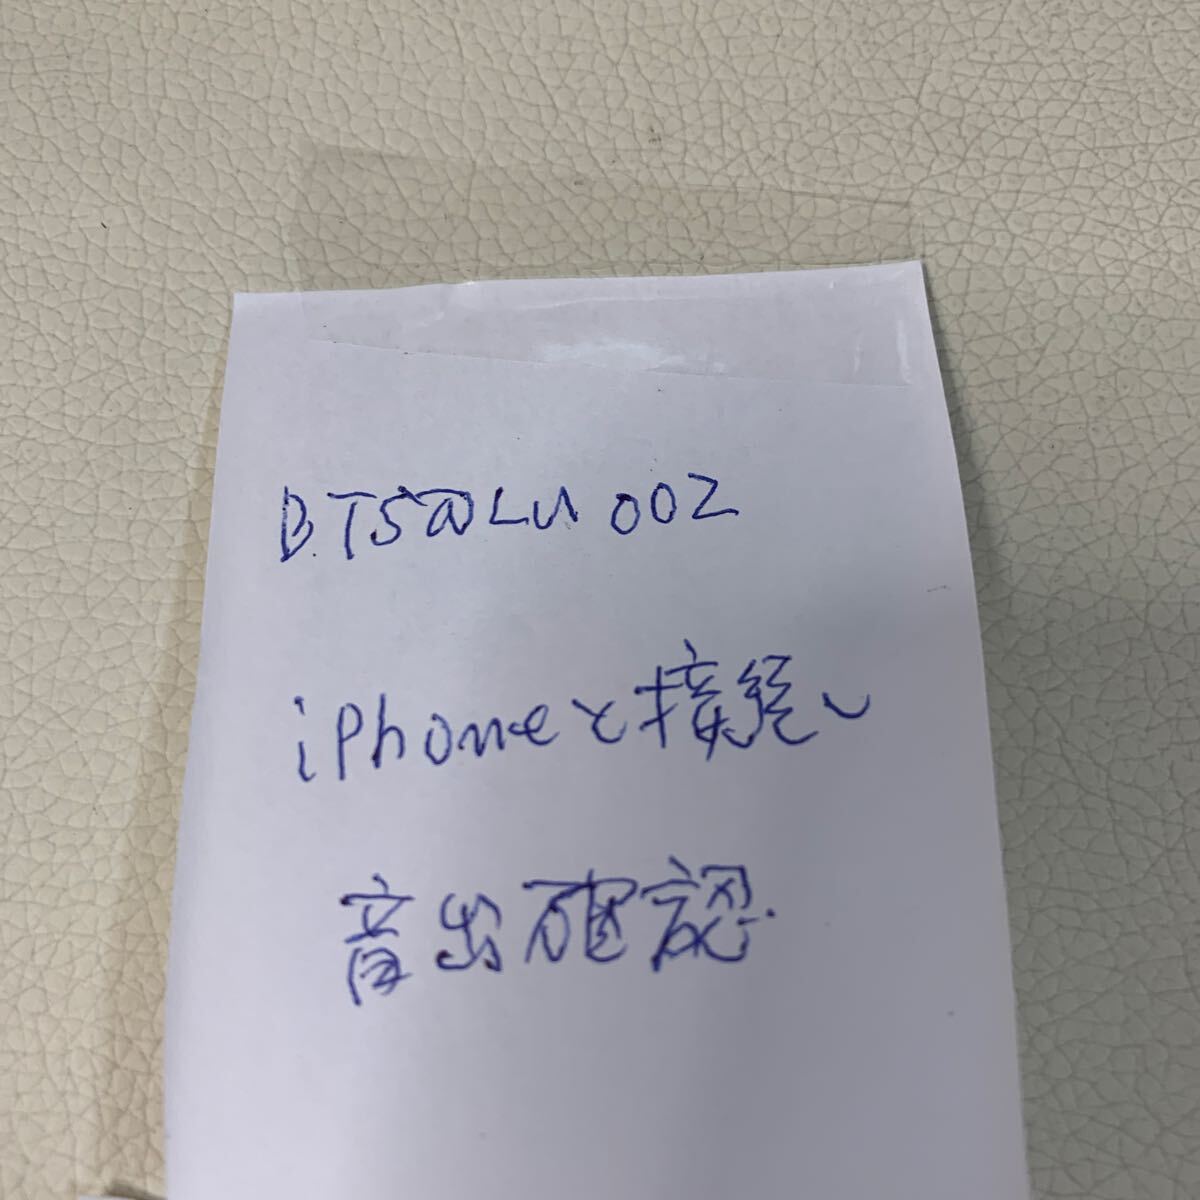 BTS@LU002
iPhoneと接続し
音出確認.